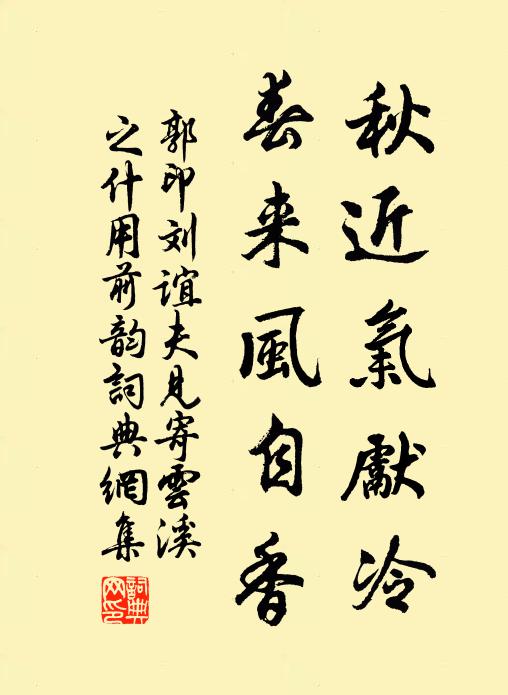 秋近氣獻冷
春来風自香
郭印刘誼夫見寄雲溪
之什用前韵詞典網集
詞典